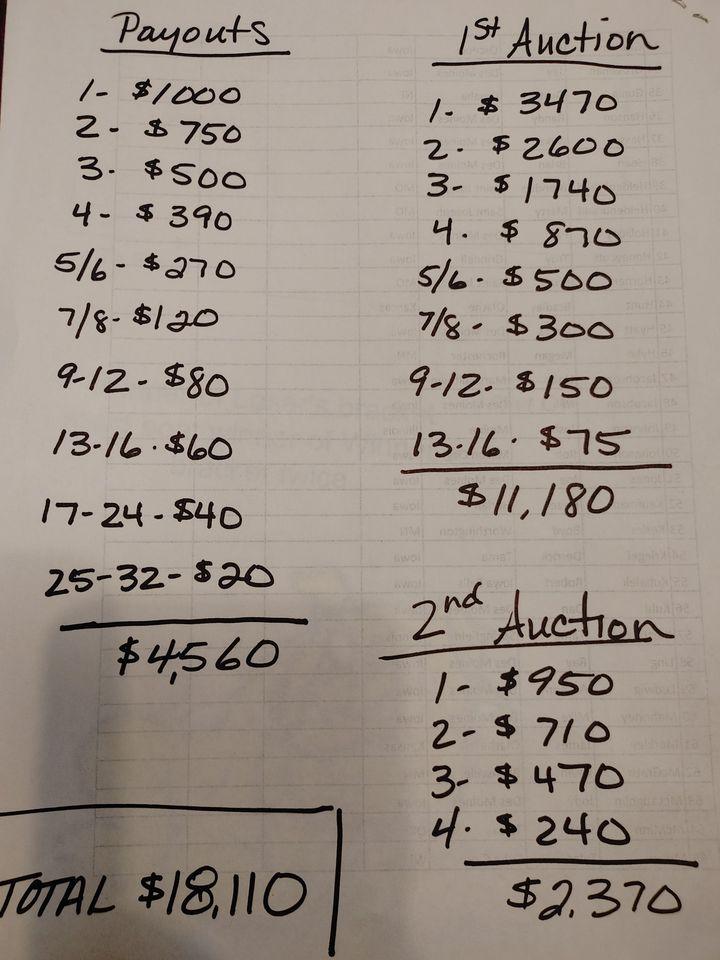 Payouts
1- $1000
2- $750
3- $500
4- $390
5/6- $270
7/8- $120
9-12- $80
13-16. $60
17-24- $40
25-32- $20
$4,560
TOTAL $18,110
1st Auction
1. $3470
2. $2600
3- $1740
4. $870
5/6. $500
7/8- $300
9-12. $150
13-16. $75
$11,180
2nd Auction
1- $950
2- $710
3- $470
4. $240
$2,370